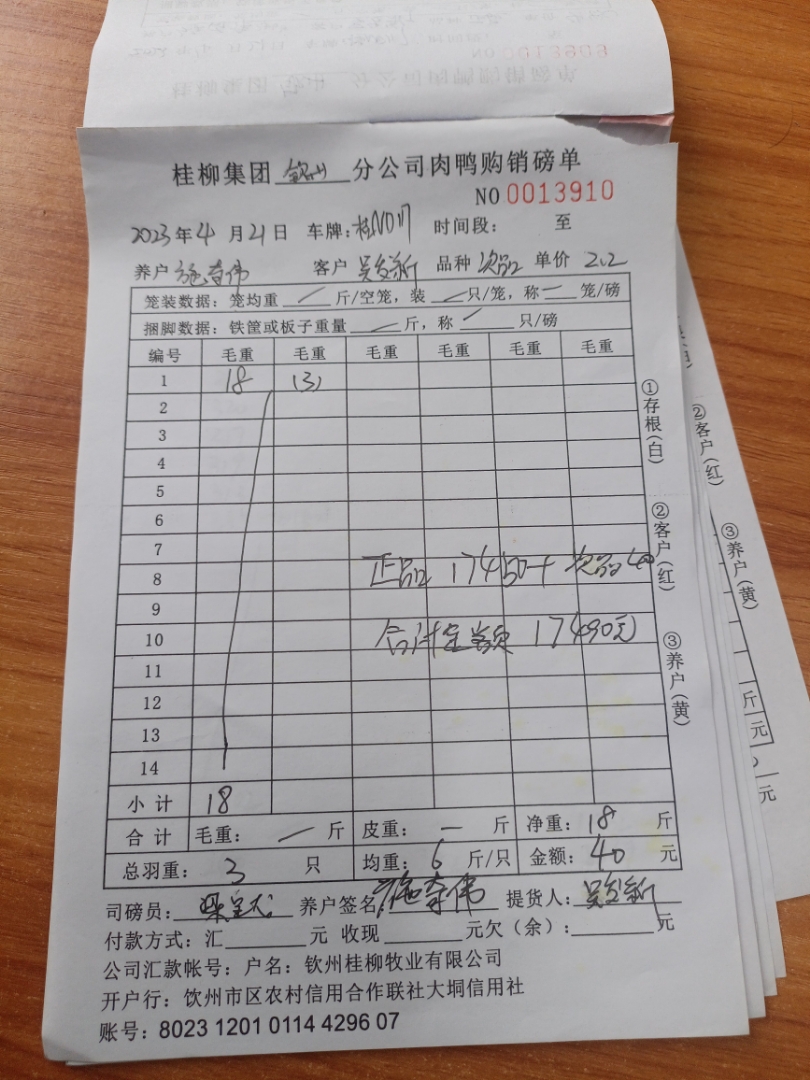 桂柳集团 钦州 分公司肉鸭购销磅单
NO 0013910
2023年4月21日 车牌: 时间段: 至
养户 施春伟 客户 吴发新 品种 次品 单价 2.2
笼装数据：笼均重 / 斤/空笼，装 / 只/笼，称 — 笼/磅
捆脚数据：铁筐或板子重量 / 斤，称 / 只/磅
编号 毛重 毛重 毛重 毛重 毛重 毛重
1 18 (3)
2
3
4
5
6
7
8 正品 17450+次品40
9
10 合计金额 17490元
11
12
13
14
小计 18
合计 毛重： — 斤 皮重： — 斤 净重：18 斤
总羽重： 3 只 均重：6 斤/只 金额：40 元
司磅员： 养户签名 施春伟 提货人：吴发新
付款方式：汇 元 收现 元欠（余）： 元
公司汇款帐号：户名：钦州桂柳牧业有限公司
开户行：饮州市区农村信用合作联社大垌信用社
账号：8023 1201 0114 4296 07
①存根(白)
②客户(红)
③养户(黄)
②客户(红)
③养户(黄)
斤
元
元